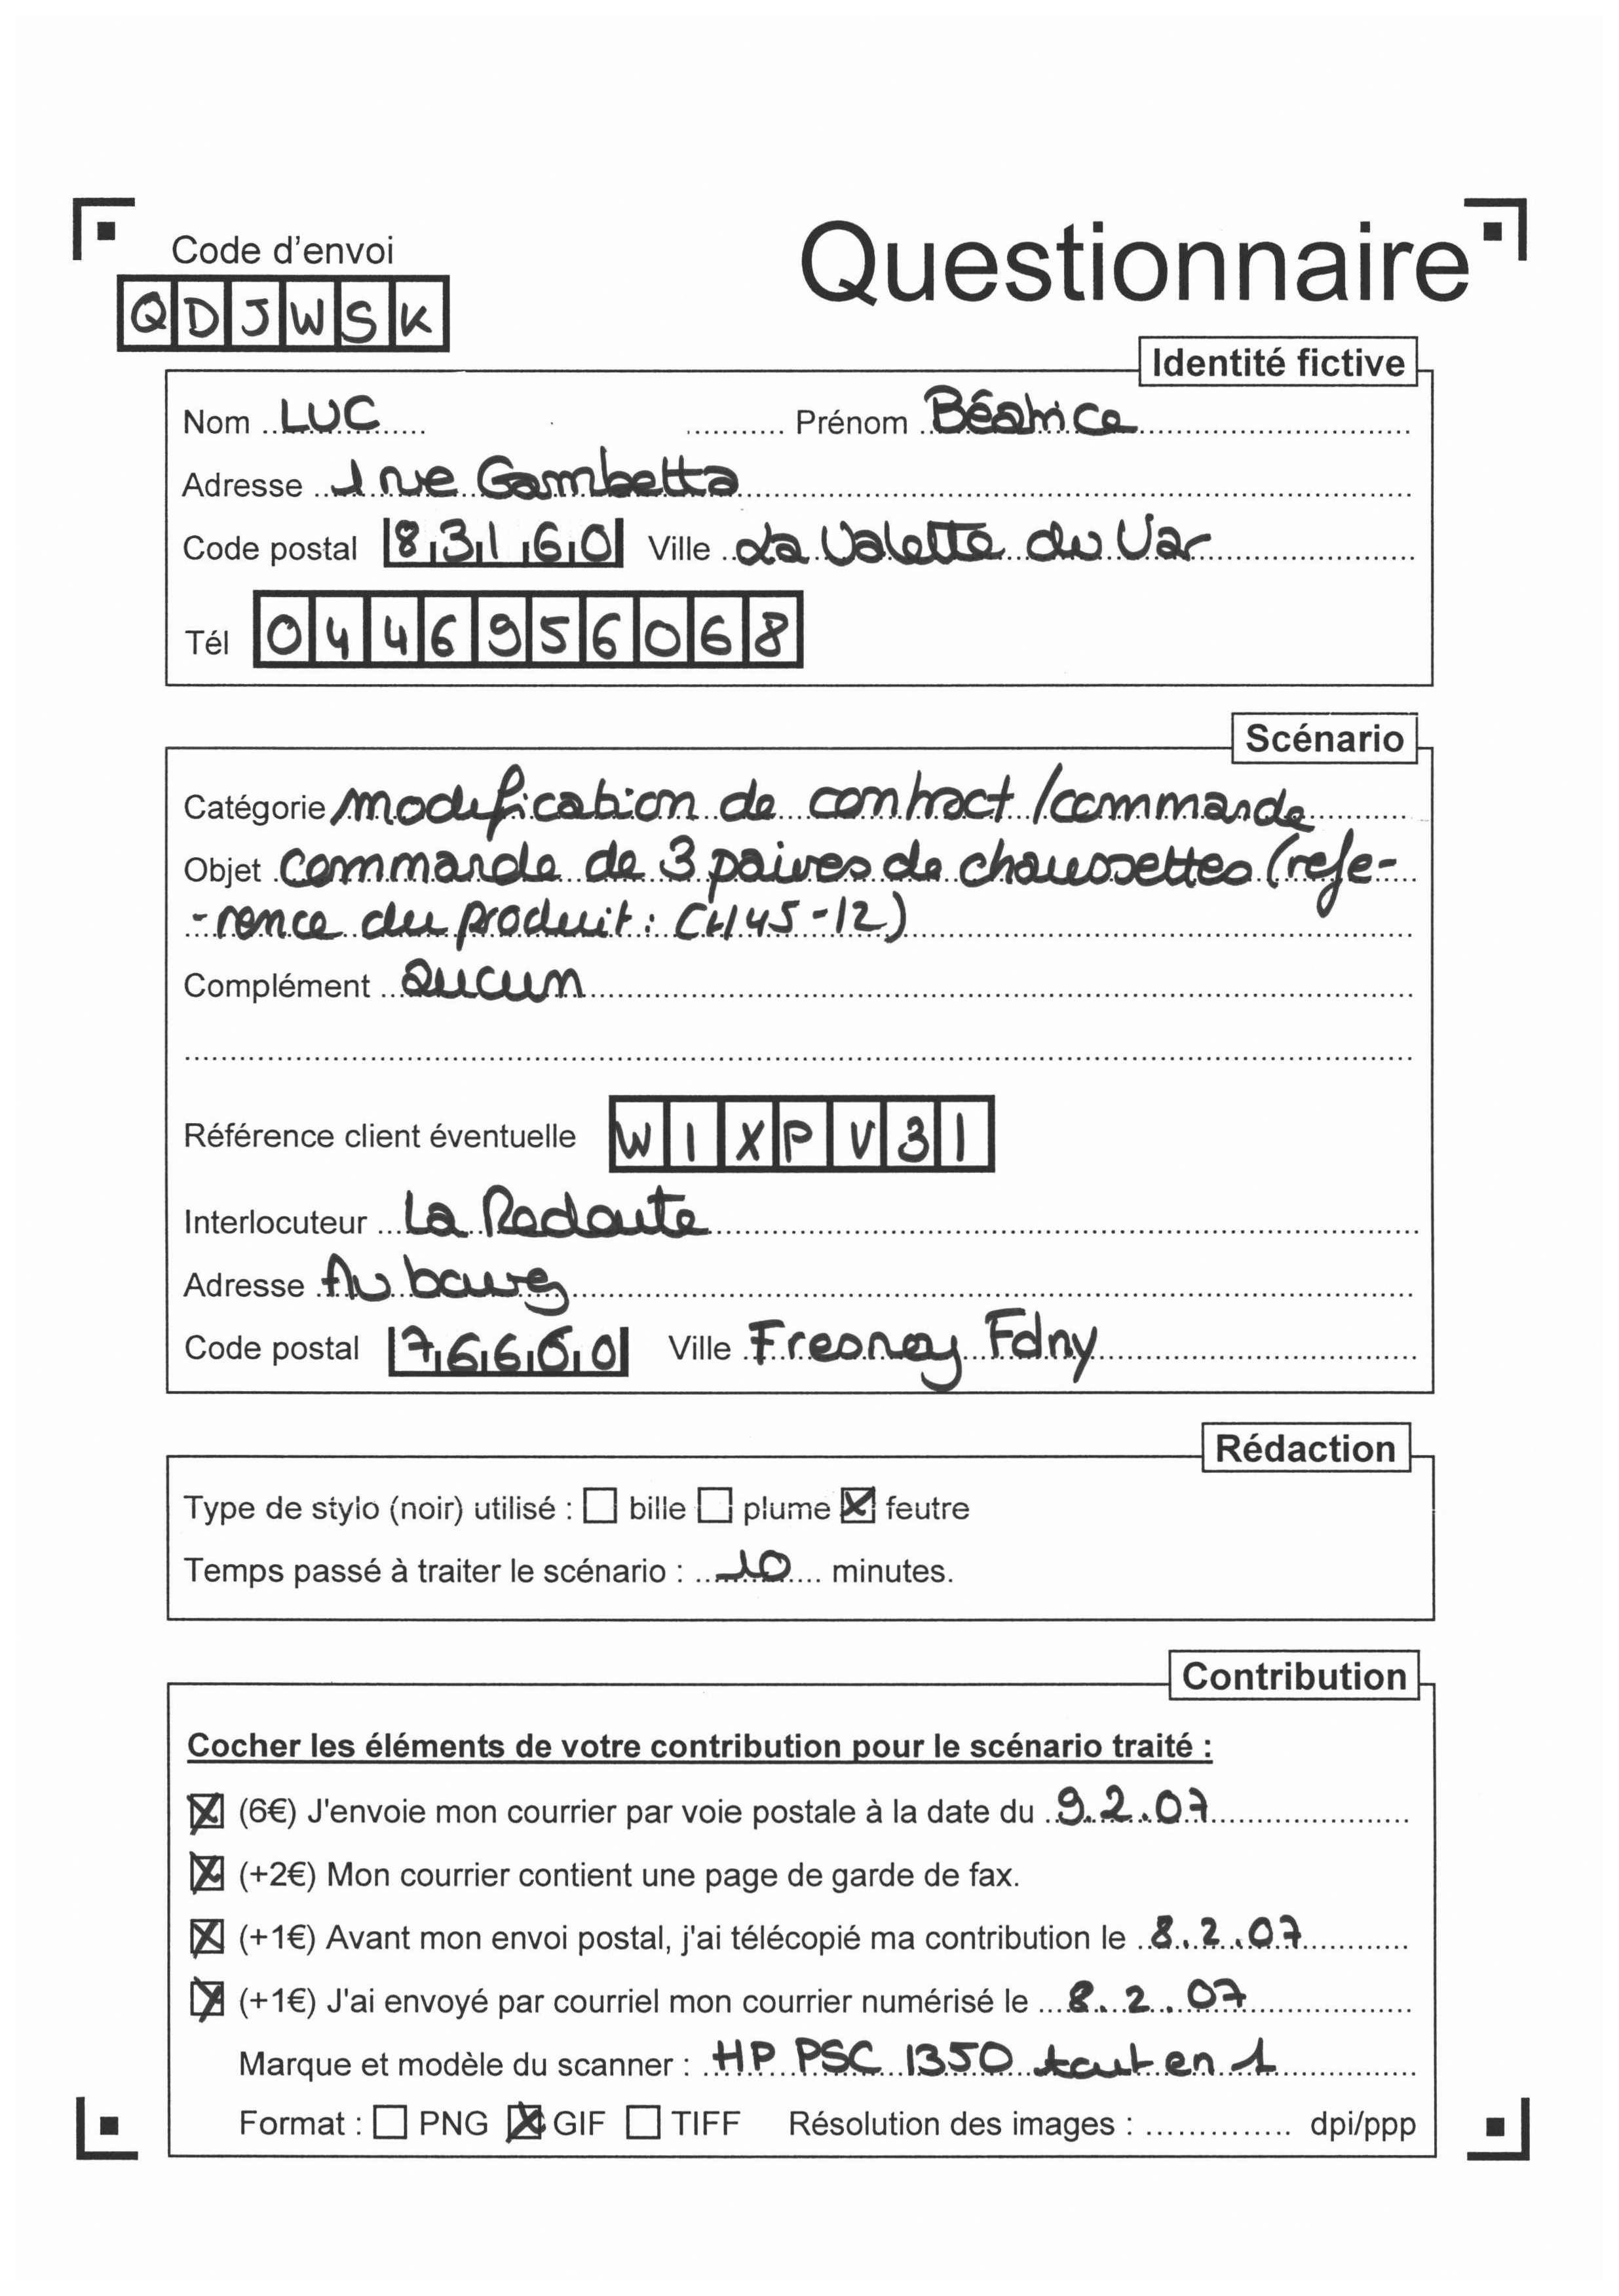 Code d'envoi
Questionnaire
QDJWSK
Identité fictive
Nom LUC Prénom Béatrice
Adresse 1 rue Gambetta
Code postal 83160 Ville La Valette du Var
Tél 0446956068
Scénario
Catégorie modification de contract /commande
Objet commande de 3 paires de chaussettes (refe-
-rence du produit : CH45-12)
Complément aucun
Référence client éventuelle WIXPV31
Interlocuteur La Redoute
Adresse Au bourg
Code postal 76660 Ville Fresnoy Folny
Rédaction
Type de stylo (noir) utilisé : ☐ bille ☐ plume ☒ feutre
Temps passé à traiter le scénario : 10 minutes.
Contribution
Cocher les éléments de votre contribution pour le scénario traité :
☒ (6€) J'envoie mon courrier par voie postale à la date du 9.2.07
☒ (+2€) Mon courrier contient une page de garde de fax.
☒ (+1€) Avant mon envoi postal, j'ai télécopié ma contribution le 8.2.07
☒ (+1€) J'ai envoyé par courriel mon courrier numérisé le 8.2.07
Marque et modèle du scanner : HP PSC 1350 tout en 1
Format : ☐ PNG ☒ GIF ☐ TIFF Résolution des images : .............. dpi/ppp